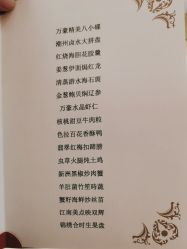 万豪精美八小碟
潮州卤水大拼盘
红烧海胆花胶羹
姜葱伊面焗红龙
清蒸游水海石斑
金葱鲍贝焖辽参
万豪水晶虾仁
核桃甜豆牛肉粒
色拉百花香酥鸭
翡翠红梅扣蹄膀
虫草火腿炖土鸡
新洲黑椒炒肉蟹
羊肚菌竹笙時蔬
蟹籽海鲜炒丝苗
江南美点映双辉
锦绣合时生果盘